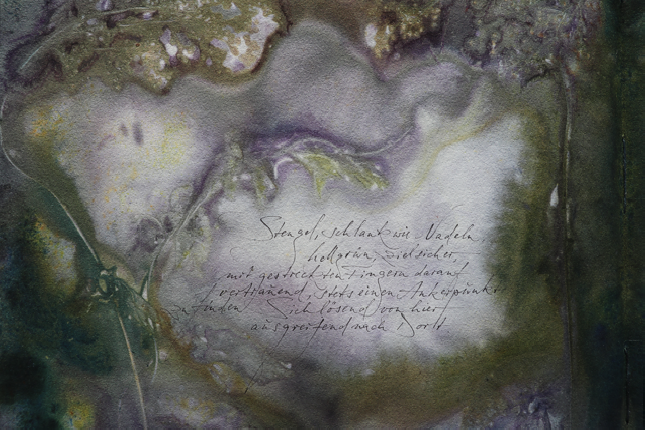 Stengel, schlank wie Nadeln,
hellgrün, zielsicher,
mit gestreckten Fingern darauf
vertrauend, stets einen Ankerpunkt
zu finden Sich lösend von hier
ausgreifend nach Dort